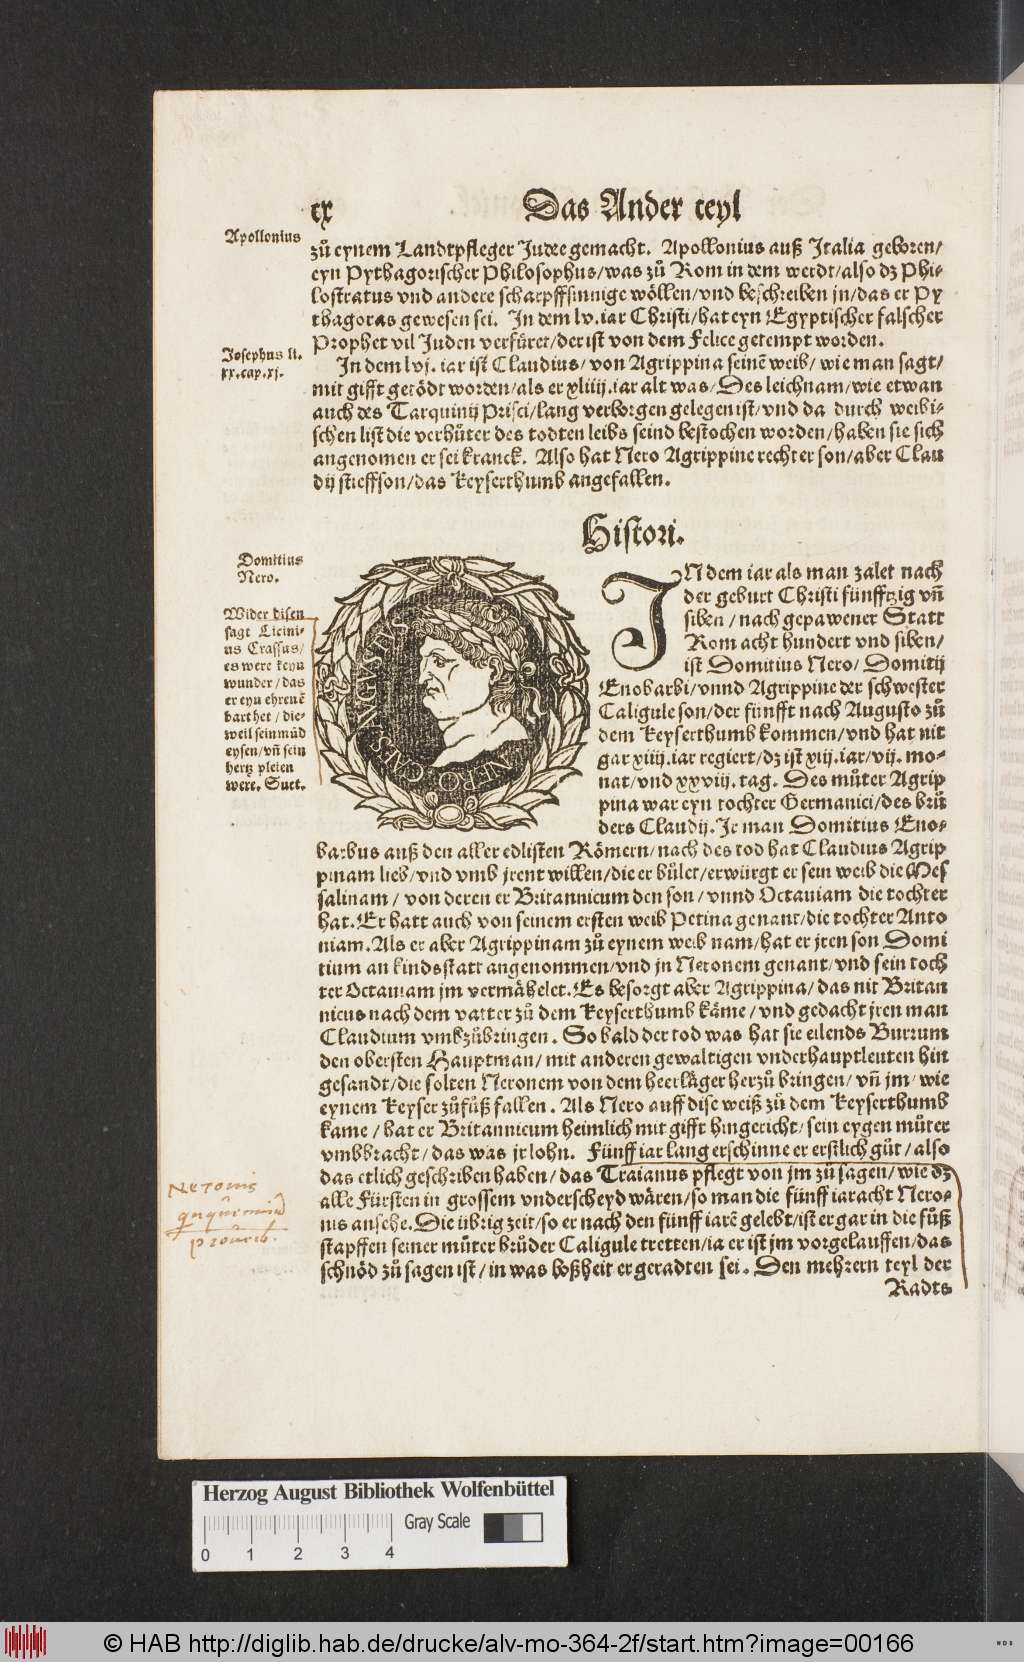 cx
Das Ander teyl
Apollonius
zů eynem Landtpfleger Judee gemacht. Apollonius auß Italia geboren/
eyn Pythagorischer Philosophus/was zů Rom in dem werdt/also dz Phi-
lostratus vnd andere scharpffsinnige wöllen/vnd beschreiben jn/das er Py
thagoras gewesen sei. In dem lv. iar Christi/hat eyn Egyptischer falscher
Prophet vil Juden verfüret/der ist von dem Felice getempt worden.
Josephus li.
xx.cap.xj.
In dem lvj. iar ist Claudius/von Agrippina seinē weib/wie man sagt/
mit gifft getödt worden/als er xliiij.iar alt was/Des leichnam/wie etwan
auch des Tarquinij Prisci/lang verborgen gelegen ist/vnd da durch weibi-
schen list die verhůter des todten leibs seind bestochen worden/haben sie sich
angenomen er sei kranck. Also hat Nero Agrippine rechter son/aber Clau
dij stieffson/das Keyserthumb angefallen.
Histori.
Domitius
Nero.
Wider disen
sagt Licini-
us Crassus/
es were keyn
wunder/das
er eyn ehrenē
bart het/die-
weil sein mūd
eysen/vñ sein
hertz pleien
were. Suet.
NERO CAES AVGVSTVS
IN dem iar als man zalet nach
der geburt Christi fünfftzig vñ
siben/nach gepawener Statt
Rom acht hundert vnd siben/
ist Domitius Nero/Domitij
Enobarbi/vnnd Agrippine der schwester
Caligule son/der fünfft nach Augusto zů
dem Keyserthumb kommen/vnd hat nit
gar xiiij.iar regiert/dz ist xiij.iar/vij. mo-
nat/vnd xxviij. tag. Des můter Agrip
pina war eyn tochter Germanici/des brů
ders Claudij. Ir man Domitius Eno-
barbus auß den aller edlisten Römern/nach des tod hat Claudius Agrip
pinam lieb/vnd vmb jrent willen/die er bůlet/erwürgt er sein weib die Mes
salinam/von deren er Britannicum den son/vnnd Octauiam die tochter
hat. Er hatt auch von seinem ersten weib Petina genant/die tochter Anto
niam. Als er aber Agrippinam zů eynem weib nam/hat er jren son Domi
tium an kindsstatt angenommen/vnd jn Neronem genant/vnd sein toch
ter Octauiam jm vermähelet. Es besorgt aber Agrippina/das nit Britan
nicus nach dem vatter zů dem Keyserthumb käme/vnd gedacht jren man
Claudium vmbzůbringen. So bald der tod was hat sie eilends Burrum
den obersten Hauptman/mit anderen gewaltigen vnderhauptleuten hin
gesandt/die solten Neronem von dem heerläger herzů bringen/vñ jm/wie
eynem Keyser zůfůß fallen. Als Nero auff dise weiß zů dem Keyserthumb
kame/hat er Britannicum heimlich mit gifft hingericht/sein eygen můter
vmbbracht/das was jr lohn. Fünff iar lang erschinne er erstlich gůt/also
das etlich geschriben haben/das Traianus pflegt von jm zů sagen/wie dz
alle Fürsten in grossem vnderscheyd wären/so man die fünff iaracht Nero-
nis ansehe. Die übrig zeit/so er nach den fünff iarē gelebt/ist er gar in die fůß
stapffen seiner můter brůder Caligule tretten/ia er ist jm vorgelauffen/das
schnöd zů sagen ist/in was boßheit er geradten sei. Den mehrern teyl der
Radts
Neronis
prouerb.
Herzog August Bibliothek Wolfenbüttel
Gray Scale
0 1 2 3 4
© HAB http://diglib.hab.de/drucke/alv-mo-364-2f/start.htm?image=00166